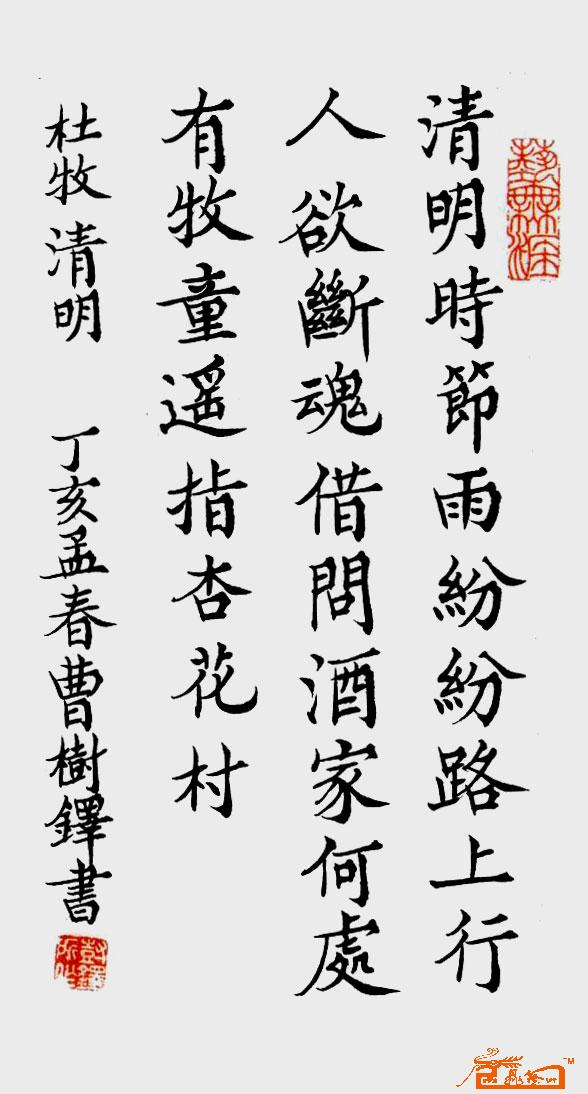 清明時節雨紛紛路上行
人欲斷魂借問酒家何處
有牧童遥指杏花村
杜牧 清明 丁亥孟春曹樹鐸書